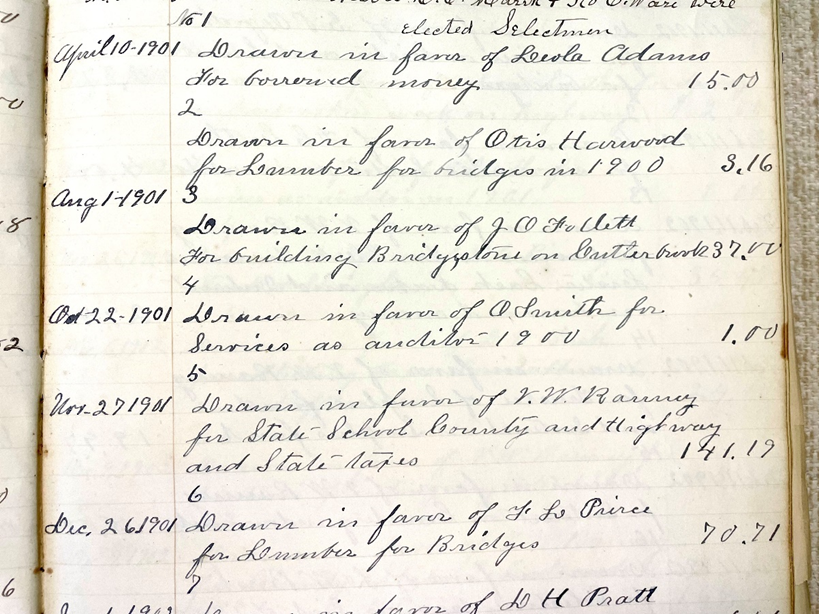 No 1
Elected Selectmen
April 10-1901 Drawn in favor of Leola Adams
For borrowed money 15.00
2
Drawn in favor of Otis Harwood
for Lumber for bridges in 1900 3.16
Aug 1-1901 3
Drawn in favor of J O Follett
For building Bridge stone on Cutler brook 37.00
4
Oct 22-1901 Drawn in favor of O Smith for
Services as auditor 1900 1.00
5
Nov-27 1901 Drawn in favor of V. W. Ranney
for State School County and Highway
and State taxes 141.19
6
Dec. 26 1901 Drawn in favor of F L Pierce
for Lumber for Bridges 70.71
7
in favor of D H Pratt